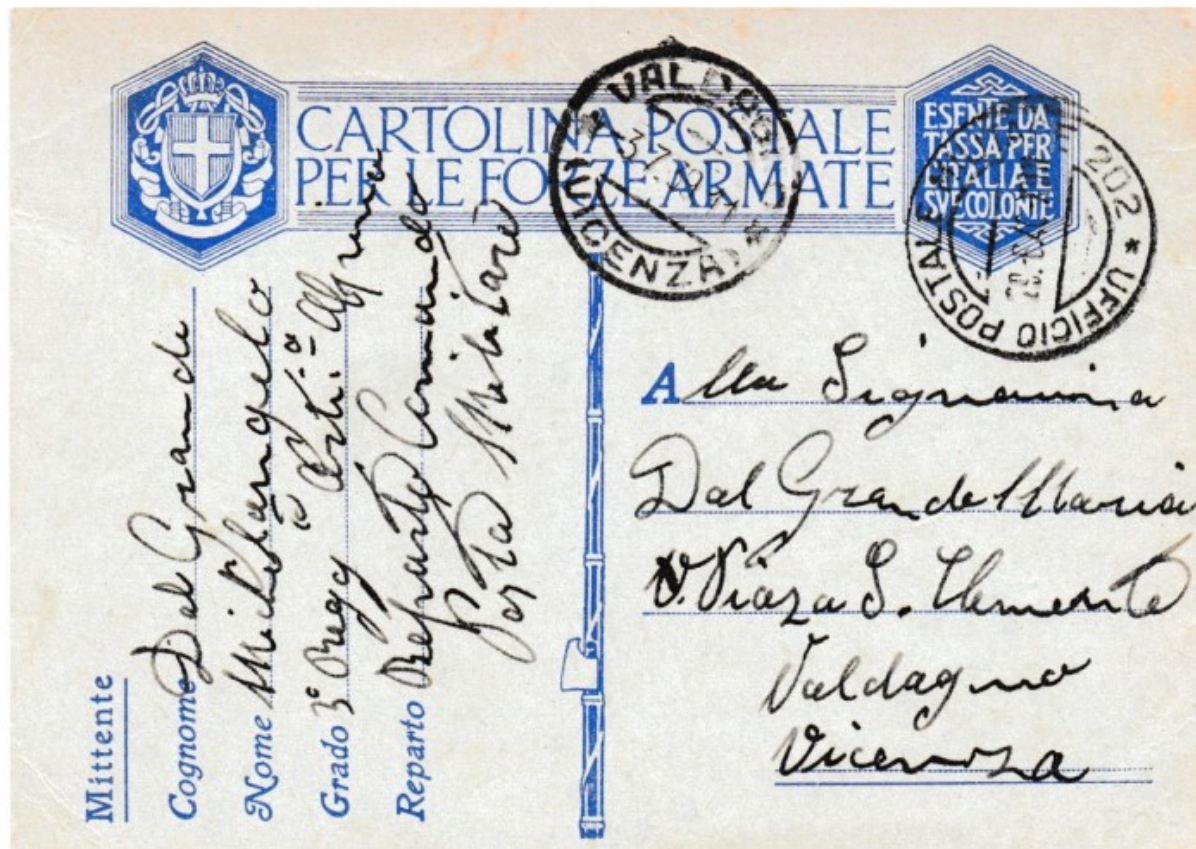 CARTOLINA POSTALE
PER LE FORZE ARMATE
ESENTE DA
TASSA PER
L'ITALIA E
SUE COLONIE
VALDAGNO
(VICENZA)
202 * UFFICIO POSTALE
Mittente
Cognome Dal Grande
Nome Michelangelo
Grado 3° Regg Art.
Reparto Reparto Comando
Posta Militare
Alla Signorina
Dal Grande Maria
V. Piazza S. Clemente
Valdagno
Vicenza